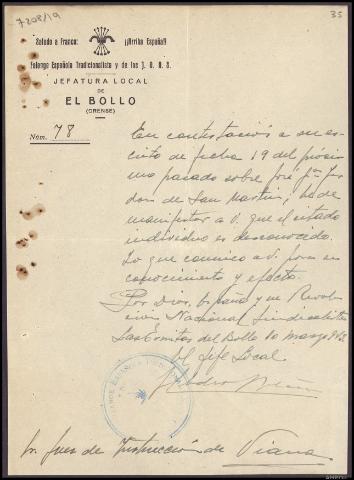 7208/19
35
Saludo a Franco: ¡¡Arriba España!!
Falange Española Tradicionalista y de las J. O. N. S.
JEFATURA LOCAL
DE
EL BOLLO
(ORENSE)
Núm. 78
En contestación a su es-
crito de fecha 19 del próxi-
mo pasado sobre José
de San Martín, he de
manifestar a V. que el citado
individuo es desconocido.
Lo que comunico a V. para su
conocimiento y efecto.
Por Dios, España y su Revolu-
ción Nacional Sindicalista
Las Ermitas del Bollo 10 marzo
El Jefe Local
Sr. Juez de Instrucción de Viana